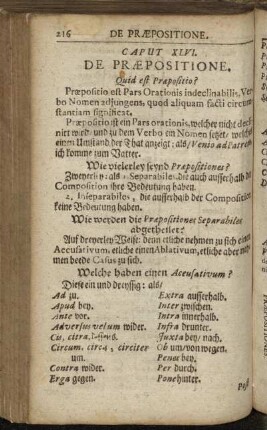 216 DE PRÆPOSITIONE.
CAPUT XLVI.
DE PRÆPOSITIONE.
Quid est Præpositio?
Præpositio est Pars Orationis indeclinabilis, Ver-
bo Nomen adjungens, quod aliquam facti circum-
stantiam significat.
Præpositio ist ein Pars orationis, welcher nicht decli-
nirt wird, und zu dem Verbo ein Nomen setzet, welches
einen Umstand der That anzeigt: als, Venio ad Patrem
ich komme zum Vatter.
Wie vielerley seynd Præpositiones?
Zweyerley: als 1. Separabiles, die auch ausserhalb der
Composition ihre Bedeutung haben.
2. Inseparabiles, die ausserhalb der Composition
keine Bedeutung haben.
Wie werden die Præpositiones Separabiles
abgetheilet?
Auf dreyerley Weise: denn etliche nehmen zu sich einen
Accusativum, etliche einen Ablativum, etliche aber neh-
men beede Casus zu sich.
Welche haben einen Accusativum?
Diese ein und dreyssig: als
Ad zu. Extra ausserhalb.
Apud bey. Inter zwischen.
Ante vor. Intra innerhalb.
Adversus wider. Infra drunter.
Cis, citra. Juxta bey, nach.
Circum, circa, circiter Ob um, von wegen.
um. Penes bey.
Contra wider. Per durch.
Erga gegen. Pone hinter.